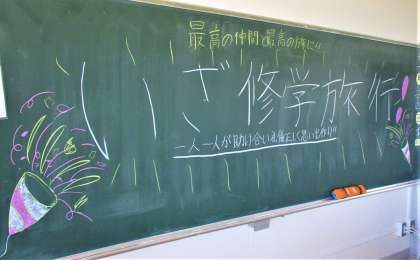 最高の仲間と最高の旅に!!
いざ修学旅行
一人一人が助け合い礼儀正しく思い出作り!!